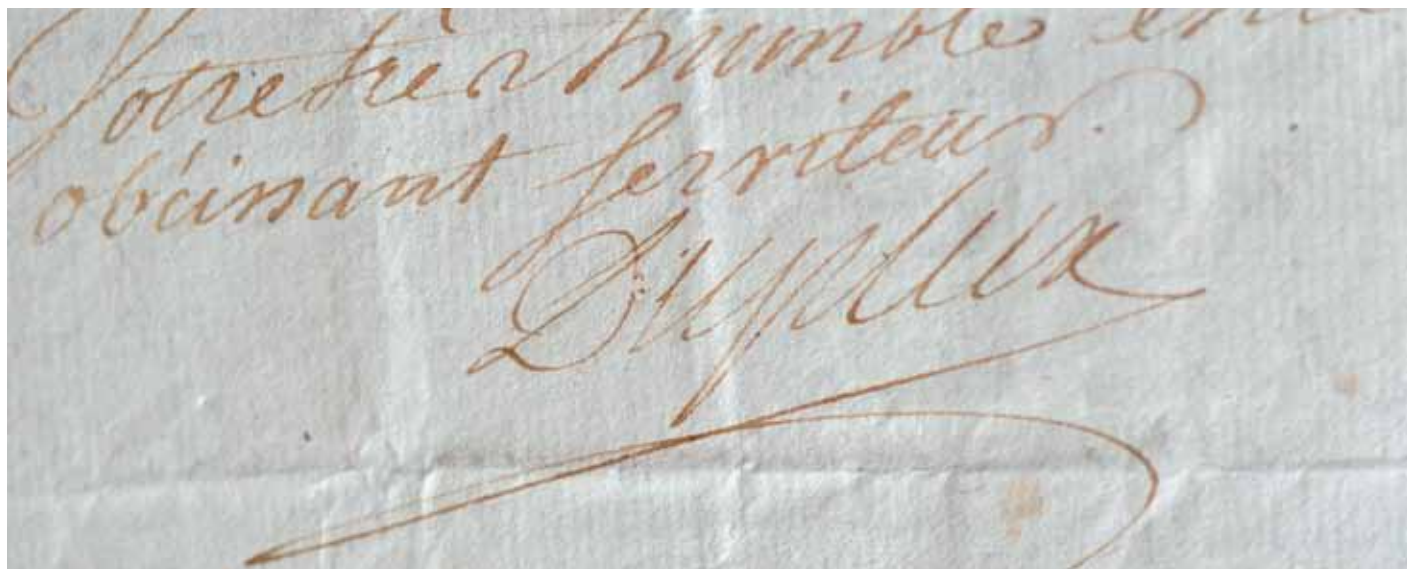 Votre très humble et
obeissant serviteur
Dupleix